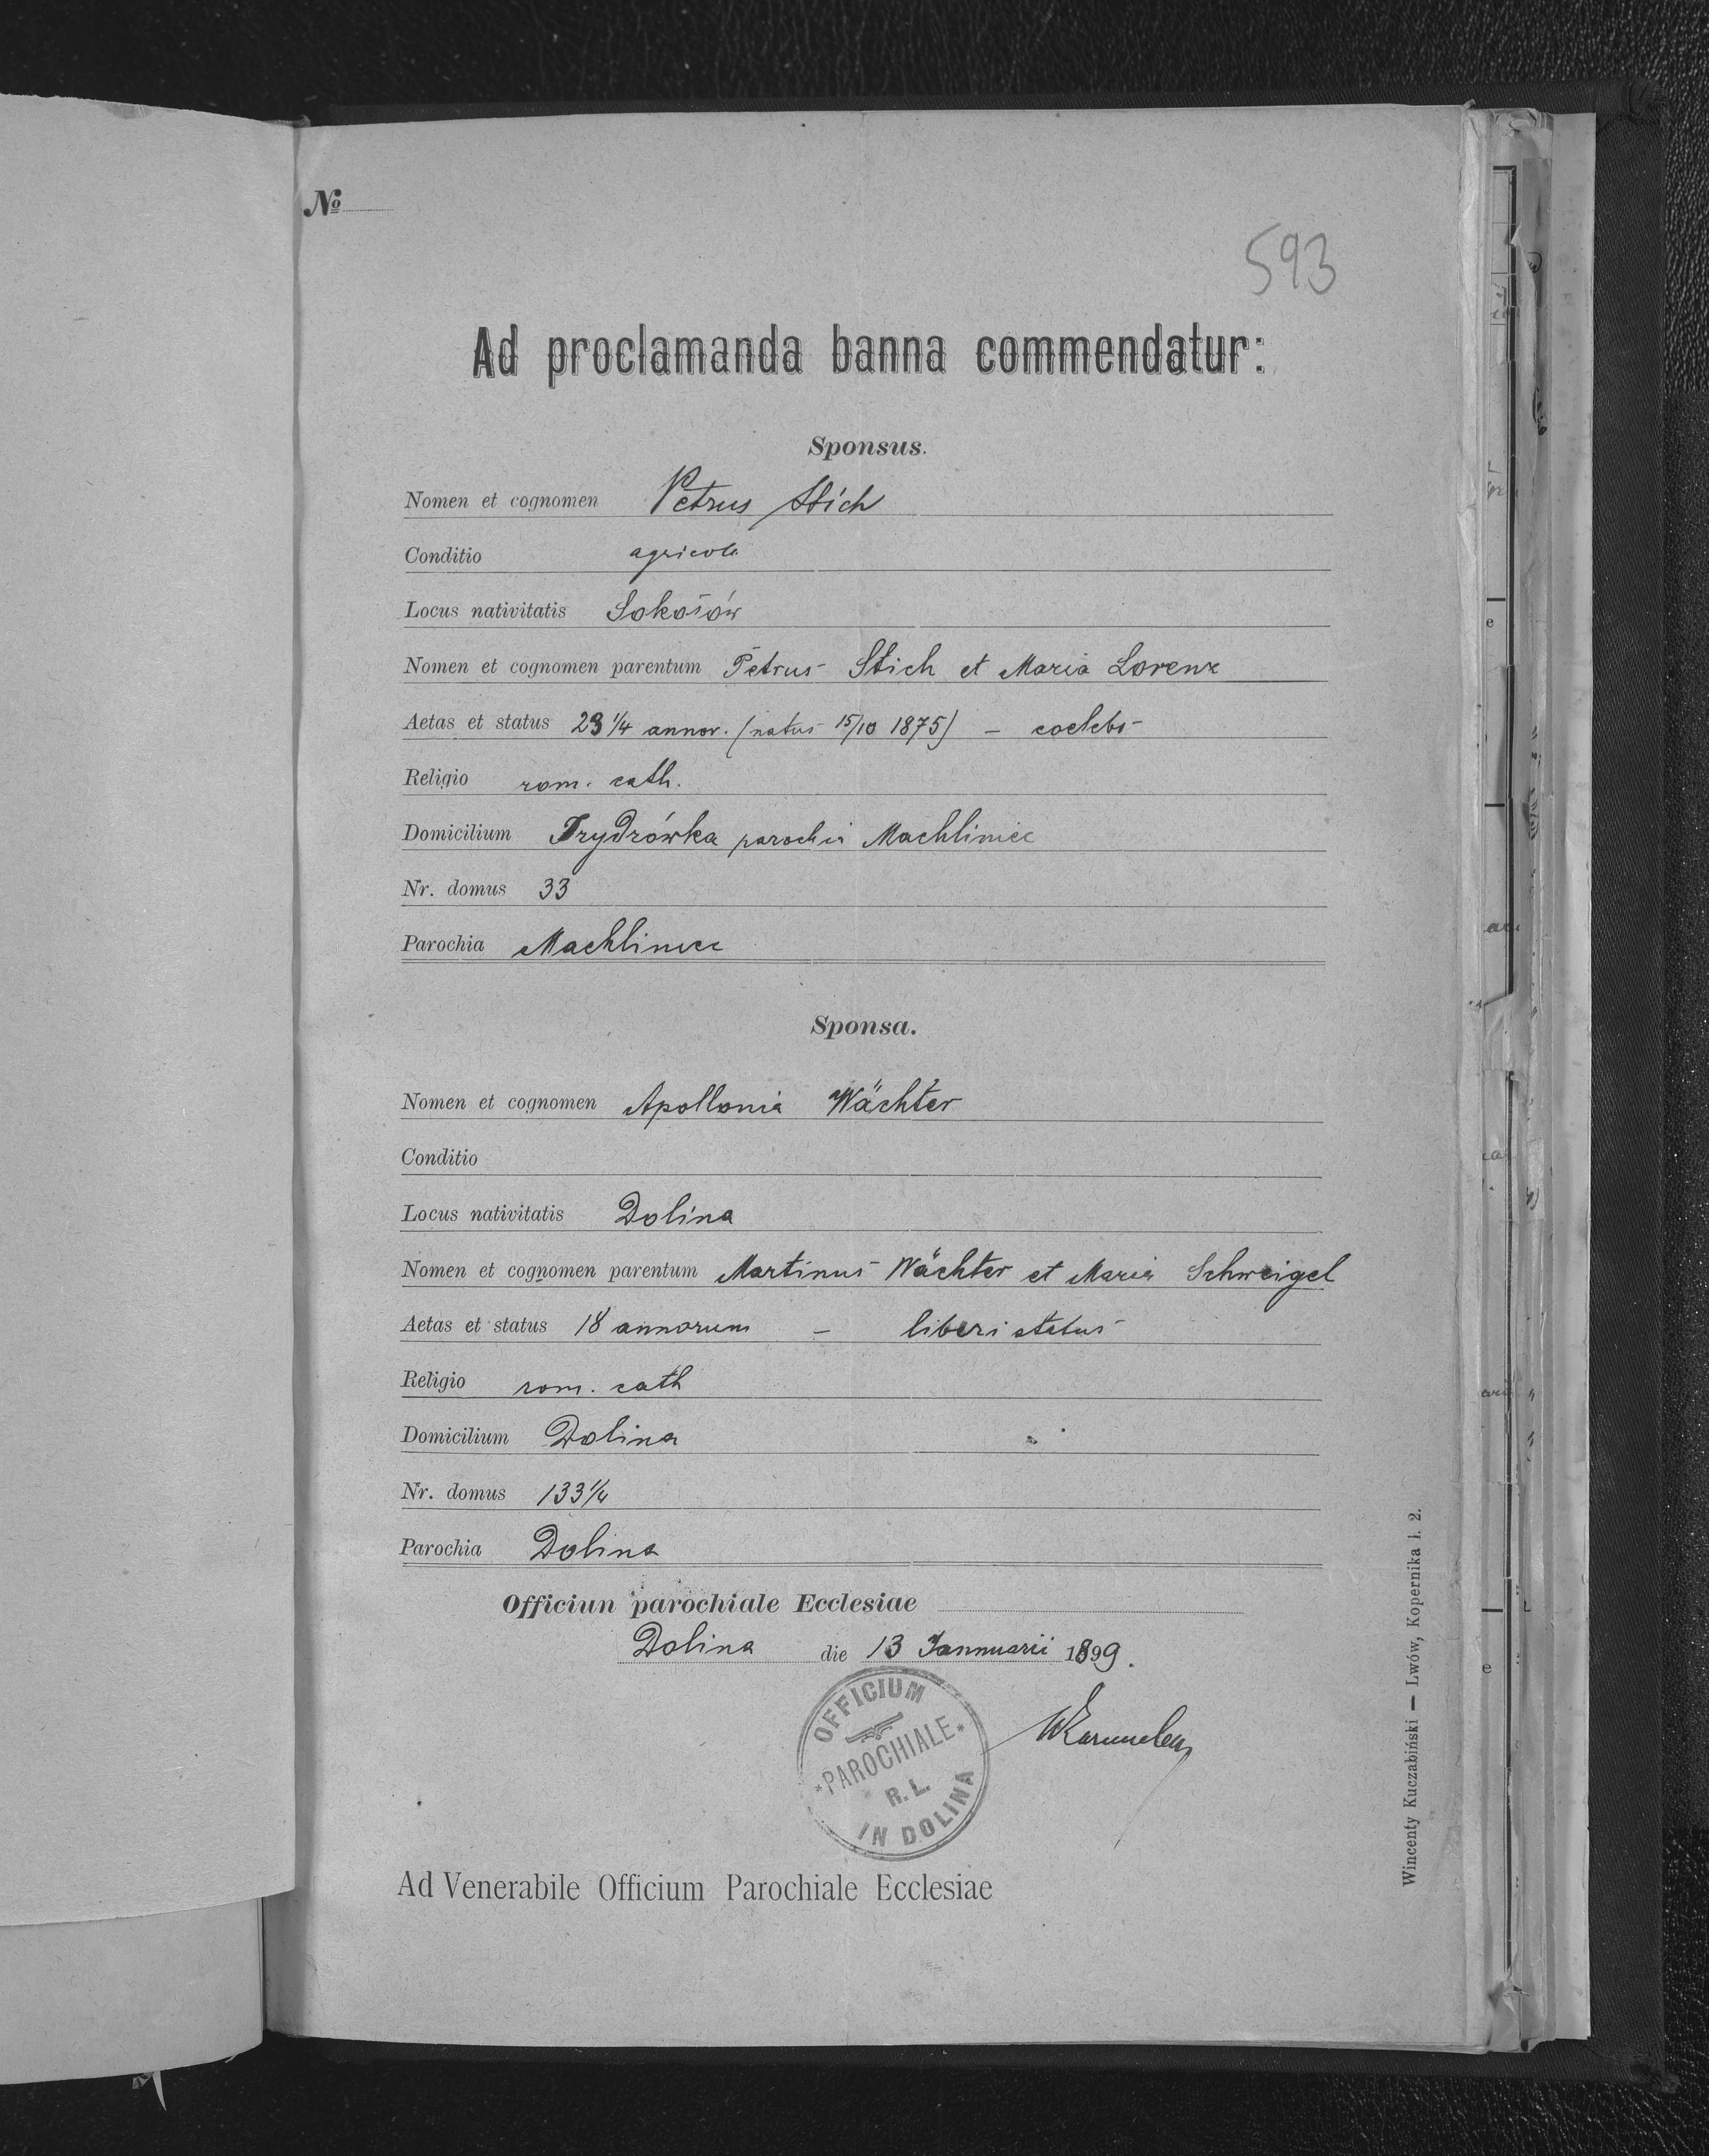 №
593
Ad proclamanda banna commendatur:
Sponsus.
Nomen et cognomen Petrus Stich
Conditio agricola
Locus nativitatis Sokołów
Nomen et cognomen parentum Petrus Stich et Maria Lorenz
Aetas et status 23 1/4 annor. (natus 15/10 1875) – coelebs
Religio rom. cath.
Domicilium Frydrówka parochia Machliniec
Nr. domus 33
Parochia Machliniec
Sponsa.
Nomen et cognomen Apollonia Wächter
Conditio
Locus nativitatis Dolina
Nomen et cognomen parentum Martinus Wächter et Maria Schweigel
Aetas et status 18 annorum – liberi status
Religio rom. cath
Domicilium Dolina
Nr. domus 133 1/4
Parochia Dolina
Officiun parochiale Ecclesiae
Dolina die 13 Jannuarii 1899.
OFFICIUM
*PAROCHIALE*
R. L.
IN DOLINA
Ad Venerabile Officium Parochiale Ecclesiae
Wincenty Kuczabiński — Lwów, Kopernika l. 2.